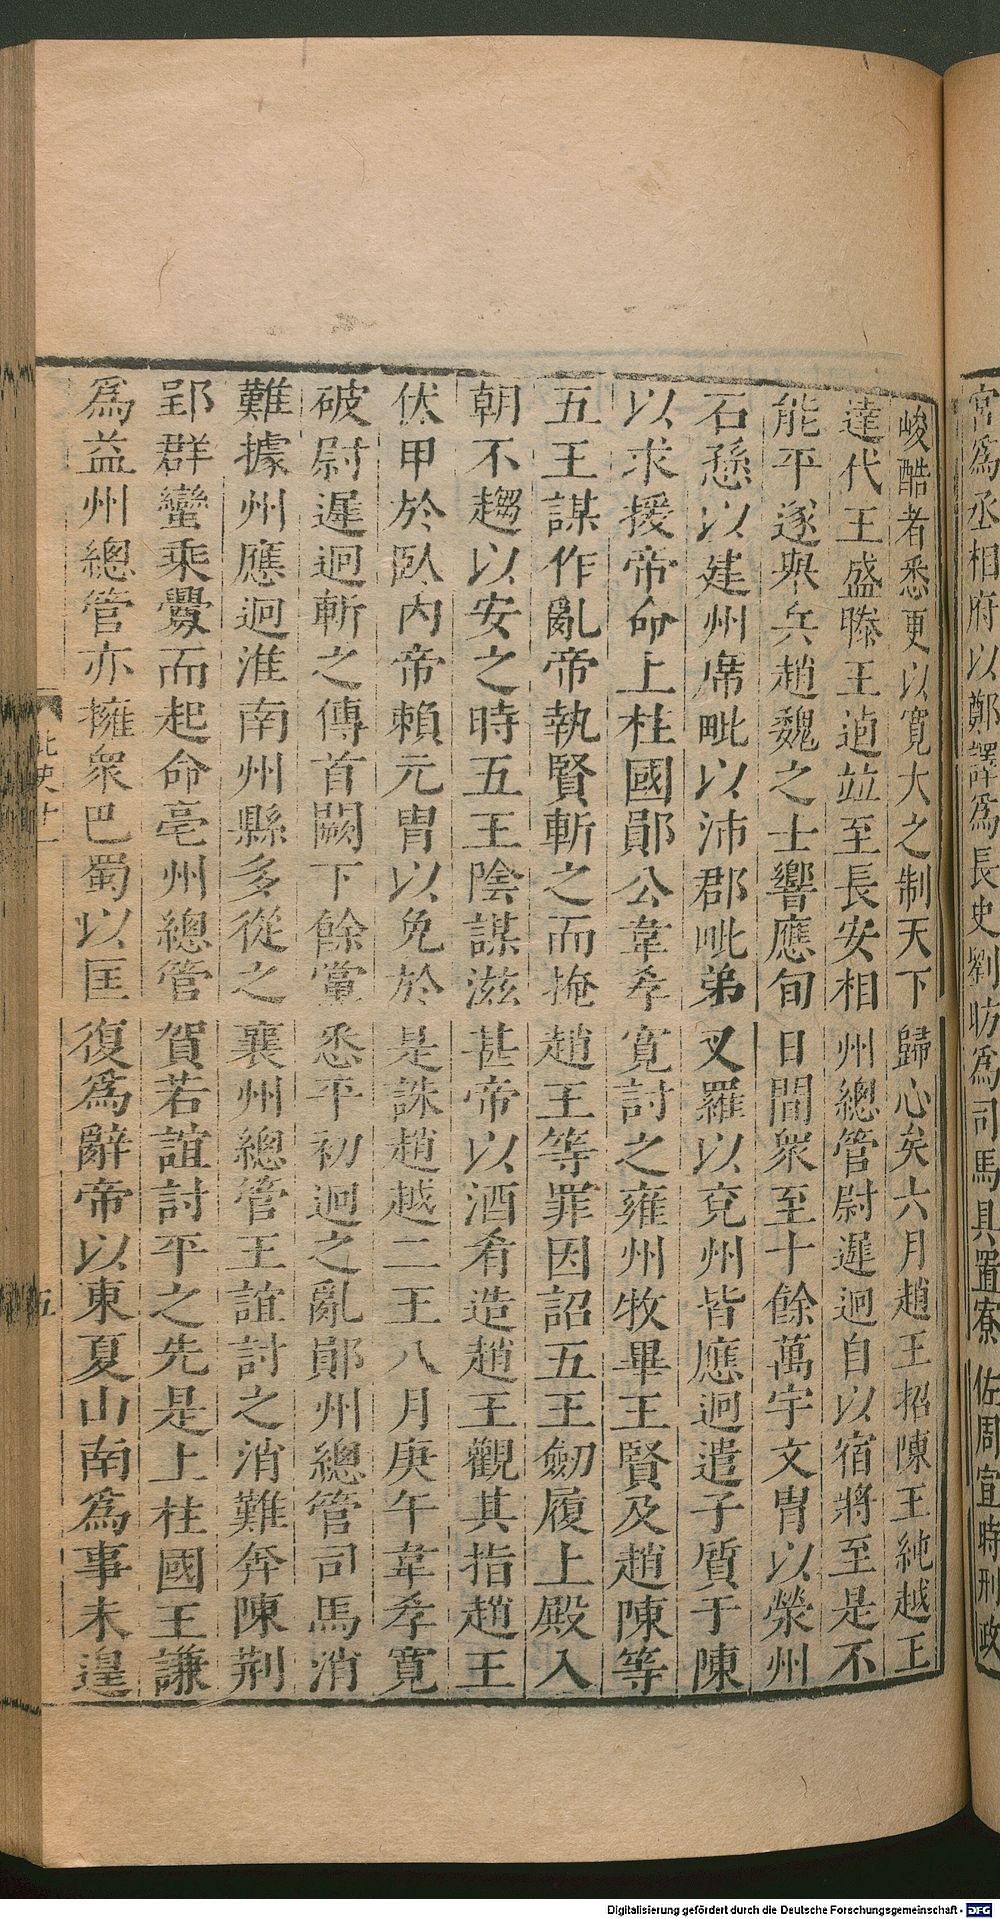 宮爲丞相府以鄭譯爲長史劉昉爲司馬具置寮佐周宣時刑政
峻酷者悉更以寬大之制天下歸心矣六月趙王招陳王純越王
達代王盛滕王逌竝至長安相州總管尉遲迥自以宿將至是不
能平遂舉兵趙魏之士響應旬日間衆至十餘萬宇文胄以滎州
石愻以建州席毗以沛郡毗弟叉羅以兗州皆應迥遣子質于陳
以求援帝命上柱國鄖公韋孝寬討之雍州牧畢王賢及趙陳等
五王謀作亂帝執賢斬之而掩趙王等罪因詔五王劒履上殿入
朝不趨以安之時五王陰謀滋甚帝以酒肴造趙王觀其指趙王
伏甲於臥內帝賴元胄以免於是誅趙越二王八月庚午韋孝寬
破尉遲迥斬之傳首闕下餘黨悉平初迥之亂鄖州總管司馬消
難據州應迥淮南州縣多從之襄州總管王誼討之消難奔陳荆
郢群蠻乘釁而起命亳州總管賀若誼討平之先是上柱國王謙
爲益州總管亦擁衆巴蜀以匡復爲辭帝以東夏山南爲事未遑
北史十一
五
Digitalisierung gefördert durch die Deutsche Forschungsgemeinschaft - DFG